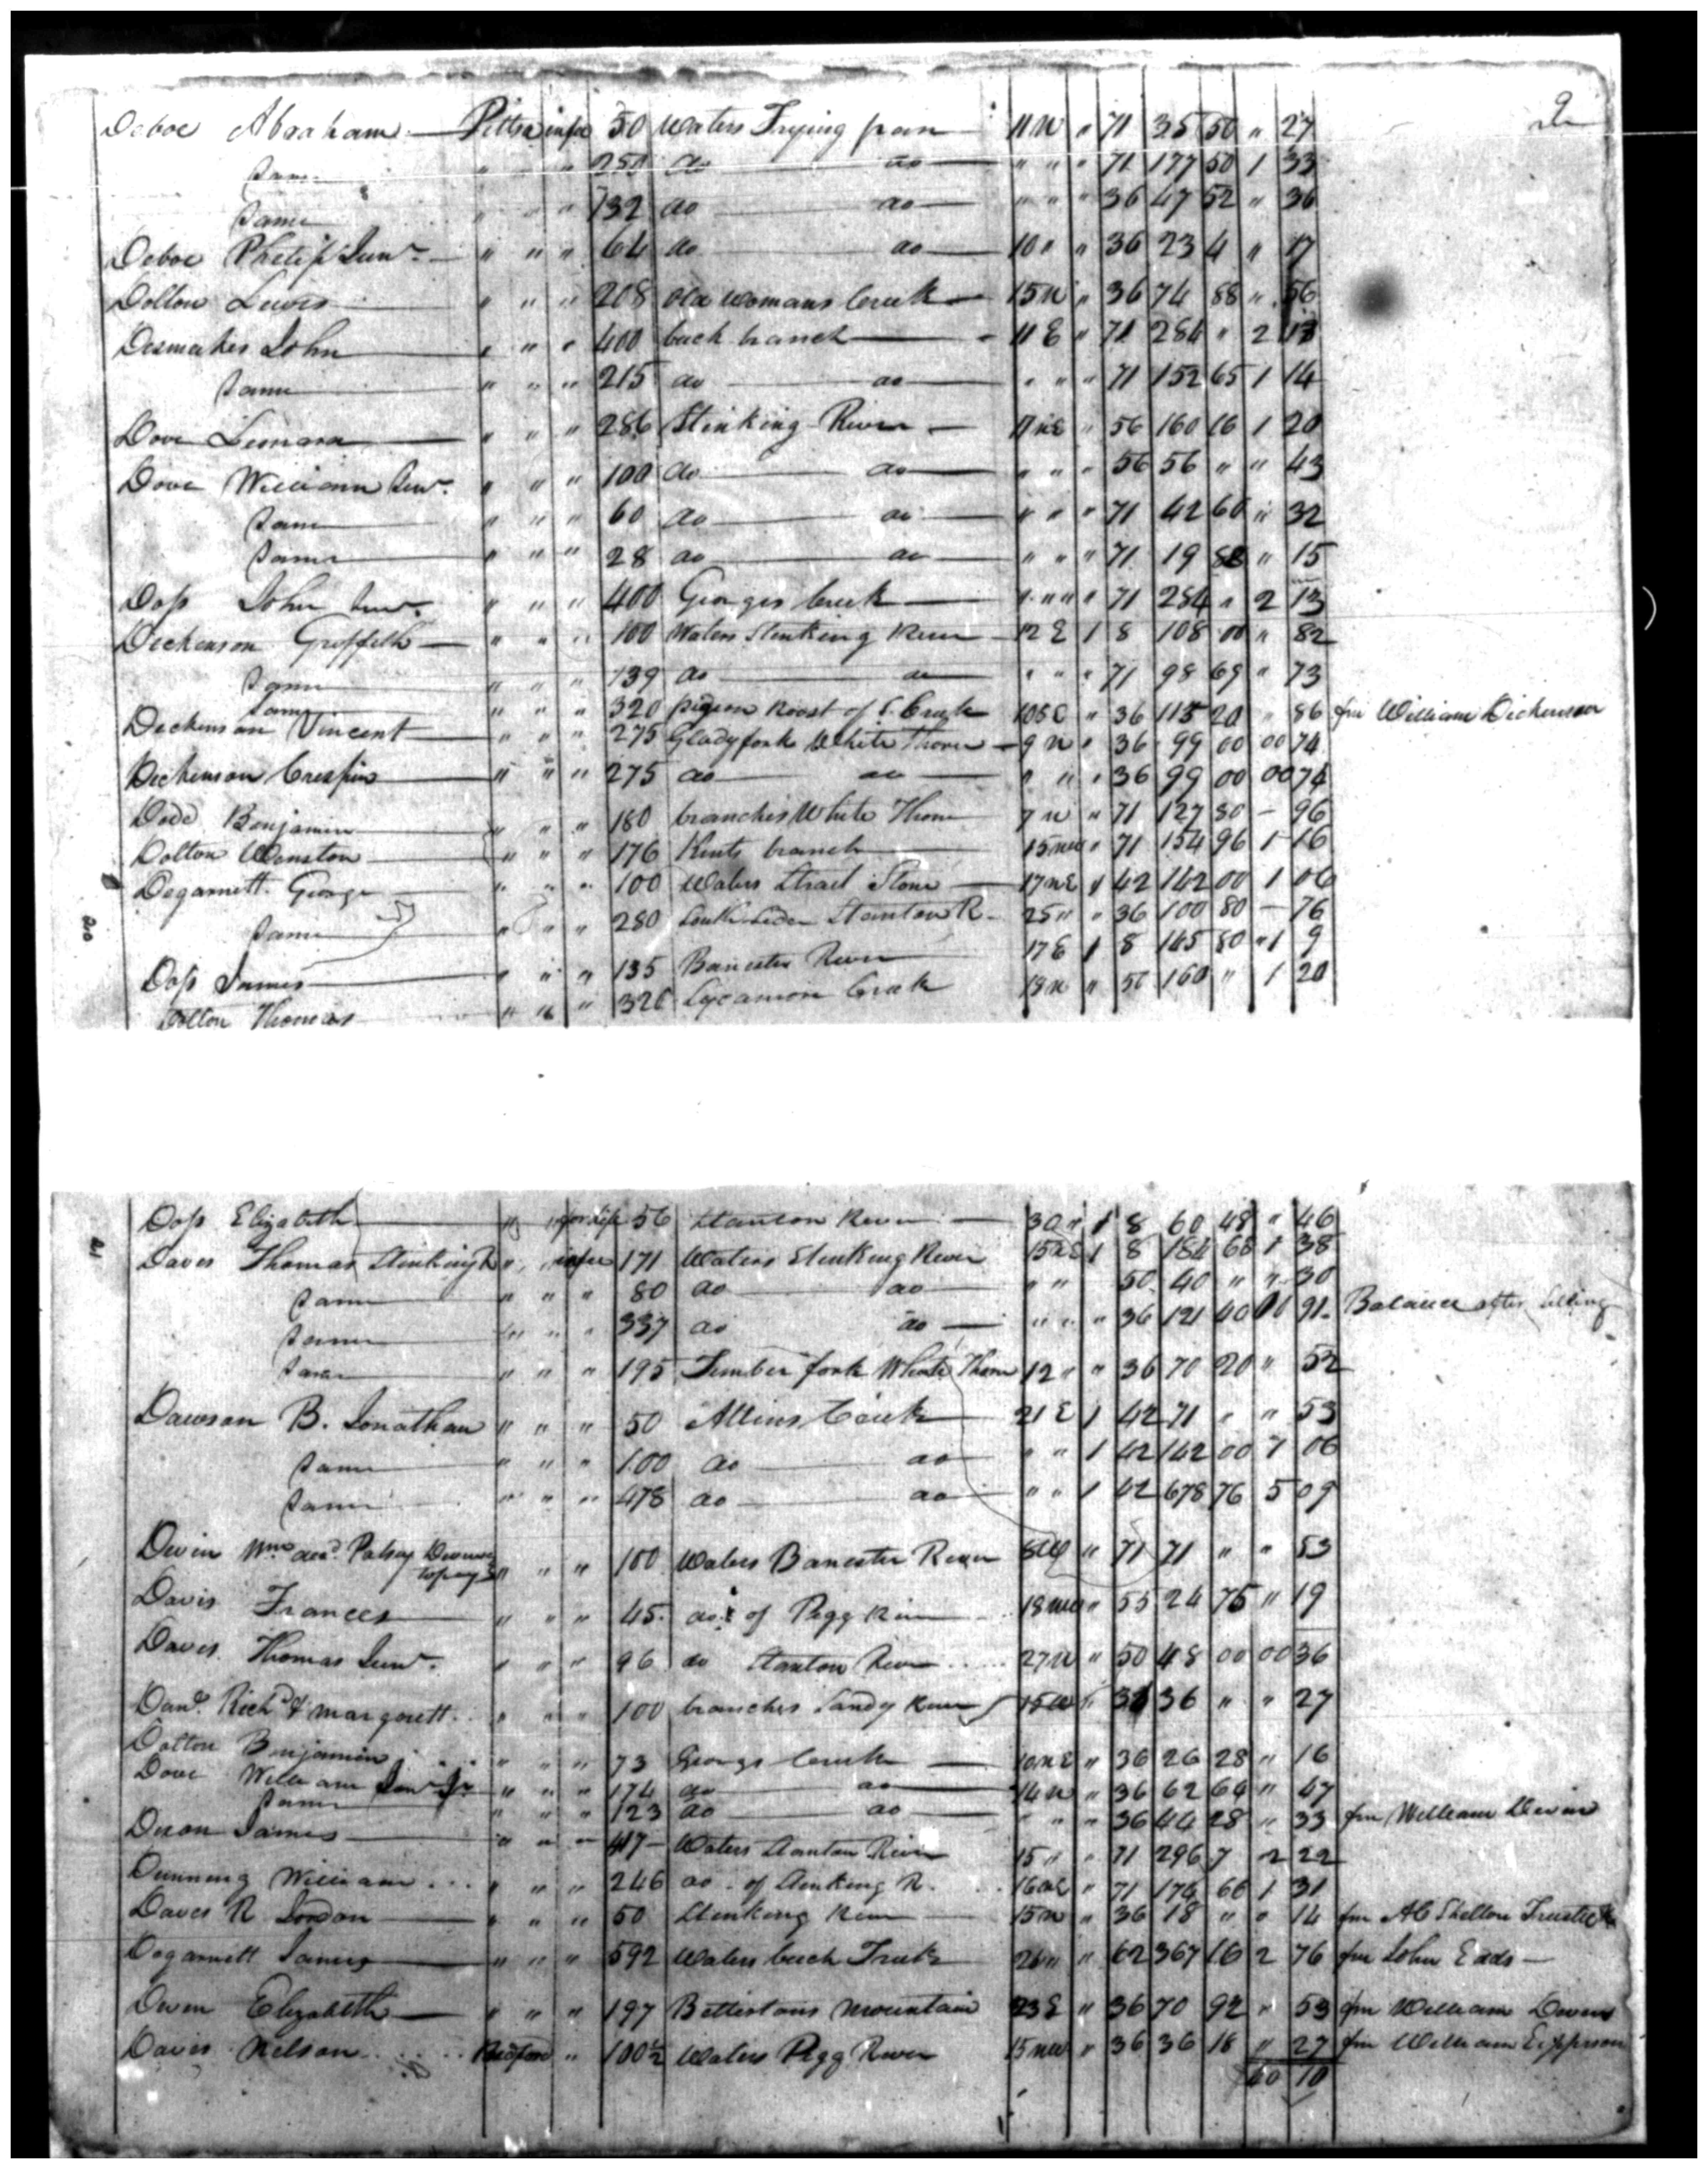 2
Deboe Abraham — Pittsa in fee 50 Waters Frying pan 11 N " 71 35 50 " 27
Same " " " 250 do do " " " 71 177 50 1 33
Same " " " 132 do do " " " 36 47 52 " 36
Deboe Philip Junr. " " " 64 do do 10 " " 36 23 4 " 17
Dolton Lewis " " " 208 Old womans Creek 15 N " 36 74 88 " 56
Desmukes John " " " 400 back branch 11 E " 71 284 " 2 13
Same " " " 215 do do " " " 71 152 65 1 14
Dove Leonard " " " 286 Stinking River 11 NE " 56 160 16 1 20
Dove William Senr. " " " 100 do do " " " 56 56 " " 43
Same " " " 60 do do " " " 71 42 60 " 32
Same " " " 28 do do " " " 71 19 88 " 15
Doss John Senr. " " " 400 Georges Creek " " " 71 284 " 2 13
Dickenson Griffith " " " 100 Waters Stinking River 12 E 1 8 108 00 " 82
Same " " " 139 do do " " " 71 98 69 " 73
Same " " " 320 pigeon Roost of S. Creek 10 SE " 36 115 20 " 86 fm William Dickenson
Dickenson Vincent " " " 275 Glady fork White Thorn 9 N " 36 99 00 00 74
Dickenson Crispin " " " 275 do do " " " 36 99 00 00 74
Dodd Benjamin " " " 180 branches White Thorn 7 N " 71 127 80 — 96
Dolton Winston " " " 176 Kents branch 15 NW " 71 154 96 1 16
Degarnett George " " " 100 Waters Strait Stone 17 NE 1 42 142 00 1 06
Same " " " 280 South Side Stanton R. 25 " " 36 100 80 — 76
Doss James " " " 135 Banester River 17 E 1 8 145 80 " 1 9
Dolton Thomas " " " 320 Sycamore Creek 18 N " 50 160 " 1 20
20
21
Doss Elizabeth " " for life 56 Stanton River 30 " 1 8 60 48 " 46
Daves Thomas Stinking R " " in fee 171 Waters Stinking River 15 NE 1 8 184 68 1 38
Same " " " 80 do do " " 50 40 " " 30
Same " " " 337 do do " " " 36 121 40 00 91 Balance after selling
Same " " " 195 Timber fork White Thorn 12 " " 36 70 20 " 52
Dawson B. Jonathan " " " 50 Allins Creek 21 E 1 42 71 " " 53
Same " " " 100 do do " " 1 42 142 00 1 06
Same " " " 478 do do " " 1 42 678 76 5 09
Devin Wm decd. Patsey Devin to pay " " " 100 Waters Banester River 8 W " 71 71 " " 53
Davis Frances " " " 45 do of Pigg River 18 NW " 55 24 75 " 19
Daves Thomas Junr. " " " 96 do Stanton River 27 N " 50 48 00 00 36
Danl. Richd & Margarett " " " 100 branches Sandy River 15 W " 36 36 " " 27
Dolton Benjamin " " " 73 Georges Creek 10 NE " 36 26 28 " 16
Dove William Senr Jr " " " 174 do do 14 N " 36 62 64 " 47
Same " " " 123 do do " " " 36 44 28 " 33 fm William Devin
Dixon James " " " 417 Waters Stanton River 15 " " 71 296 7 2 22
Dunning William " " " 246 do of Stinking R. 16 NE " 71 174 66 1 31
Daves R Jordan " " " 50 Stinking River 15 N " 36 18 " " 14 fm AC Shelton Trustee
Degarnett James " " " 592 Waters buck Trick 26 N " 62 367 16 2 76 fm John Eads —
Owen Elizabeth " " " 197 Bettertons Mountain 23 E " 36 70 92 " 53 fm William Owens
Davis Nelson Bedford " 100 1/2 Waters Pigg River 15 NW " 36 36 18 " 27 fm William Epperson
60 10